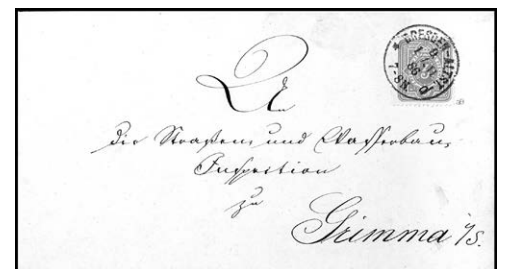 * DRESDEN-ALTST. *
86
7-8N
An
die Straßen- und Wasserbau-
Inspection
zu
Grimma i/S.